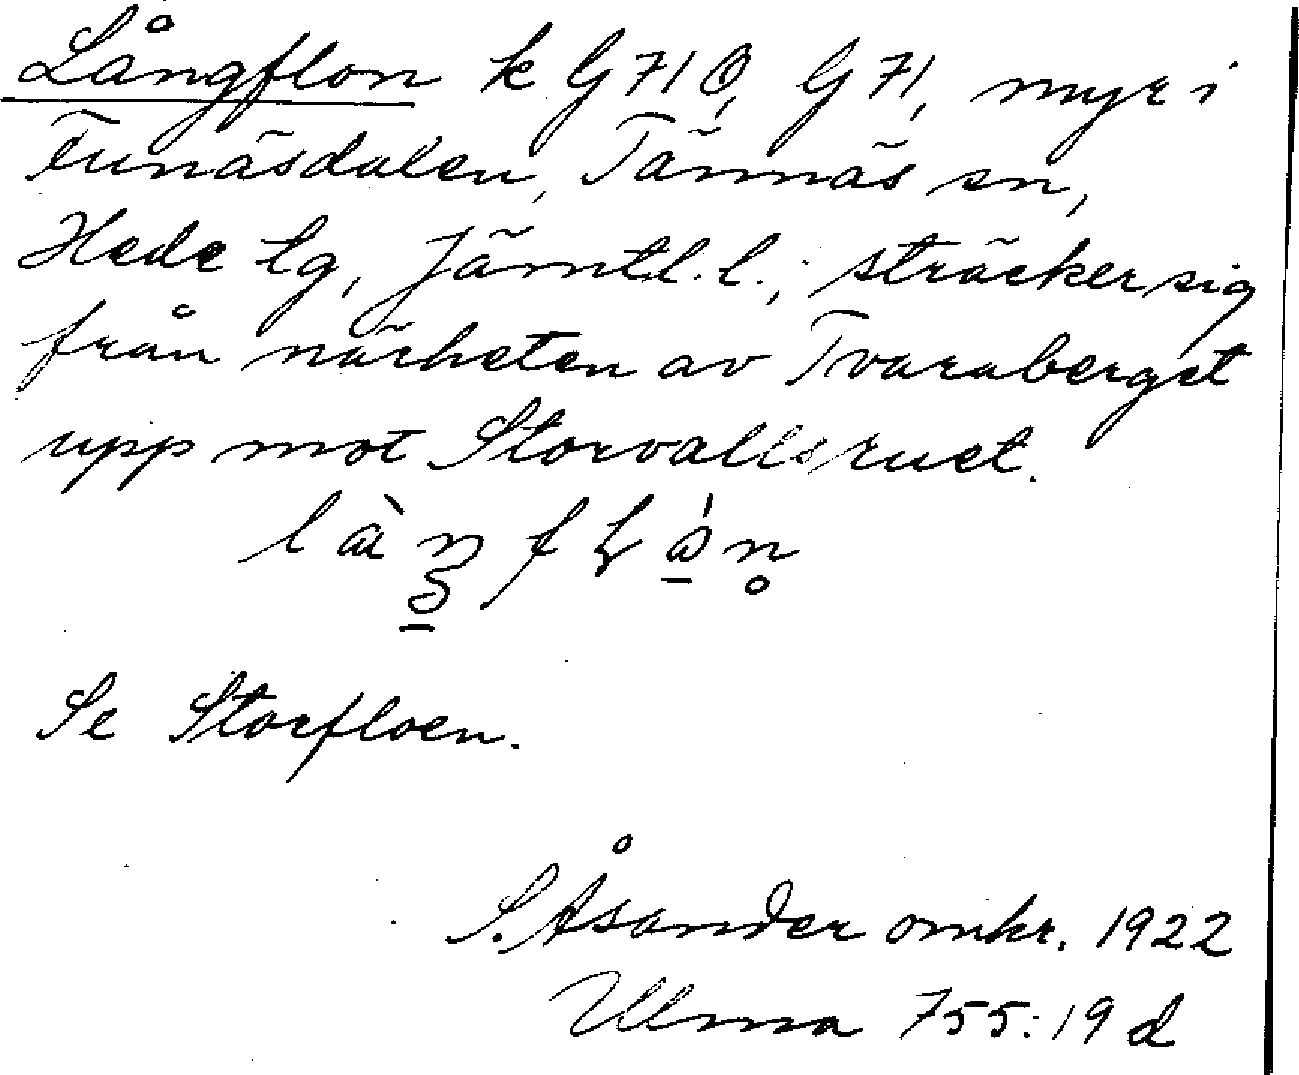 Långflon k G 71 Ö, G 71, myr i
Funäsdalen, Tännäs sn,
Hede tg, Jämtl. l.; sträcker sig
från närheten av Tvaraberget
upp mot Storvallsruet.
Se Storfloen.
S. Åsander omkr. 1922
Ulma 755:19 d